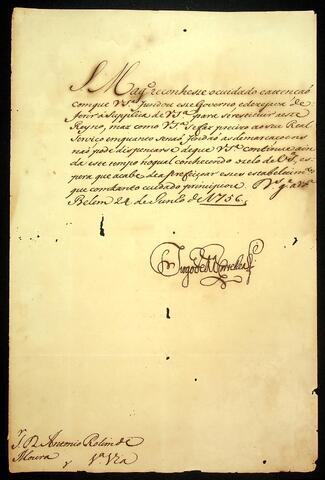 S. Mag.e reconhesse o cuidado e attencaõ
comque V.S.a fundou esse Governo, e dezejava de
ferir a Supplica de V.S.a para se restituir a este
Reyno, mas como V.S.a se faz precizo ao seu Real
Serviço em quanto se naõ findaõ as demarcacoens
naõ pode dispensar deque V.S.a continue ain
da esse tempo no qual conhecendo o zelo de V.S.a es
pera que acabe de aperfeiçoar esses estabelecim.tos
que com tanto cuidado principiou. D.s g.e a V.S.a
Belem 24 de Junho de 1756.
Diogo de M Corte Real
S.r D. Antonio Rolim de
Moura